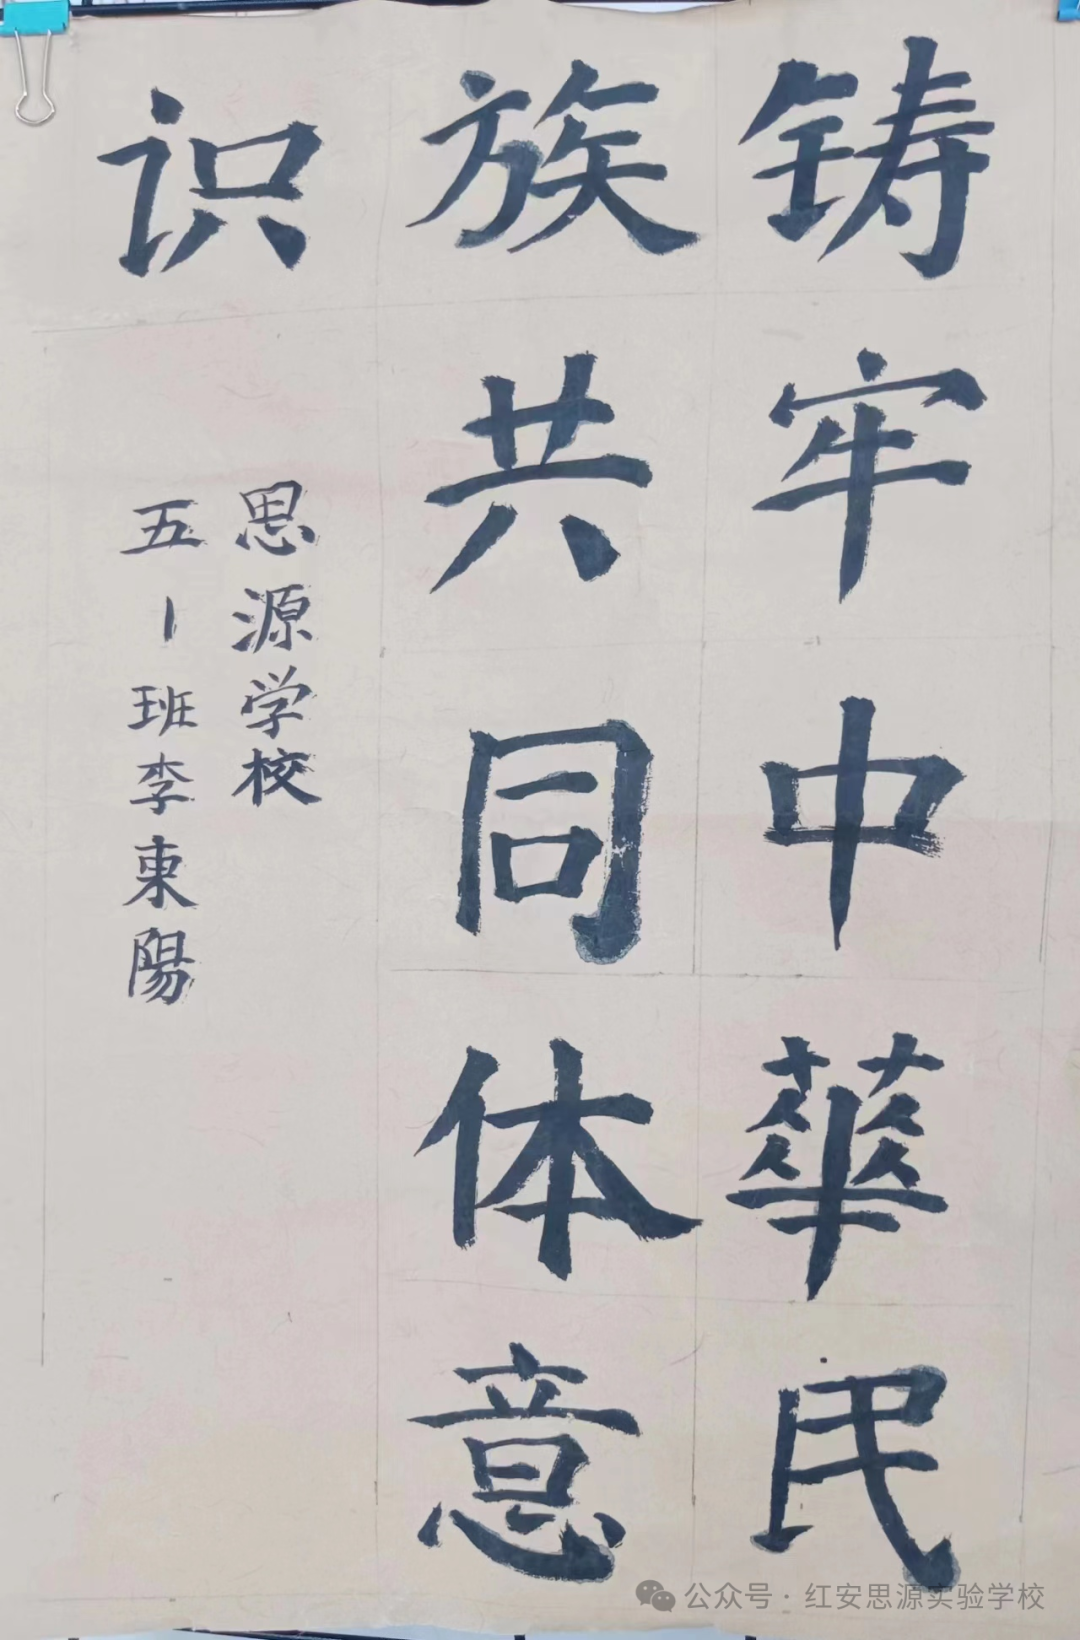 铸牢中華民
族共同体意
识
思源学校
五一班李東陽
公众号·红安思源实验学校